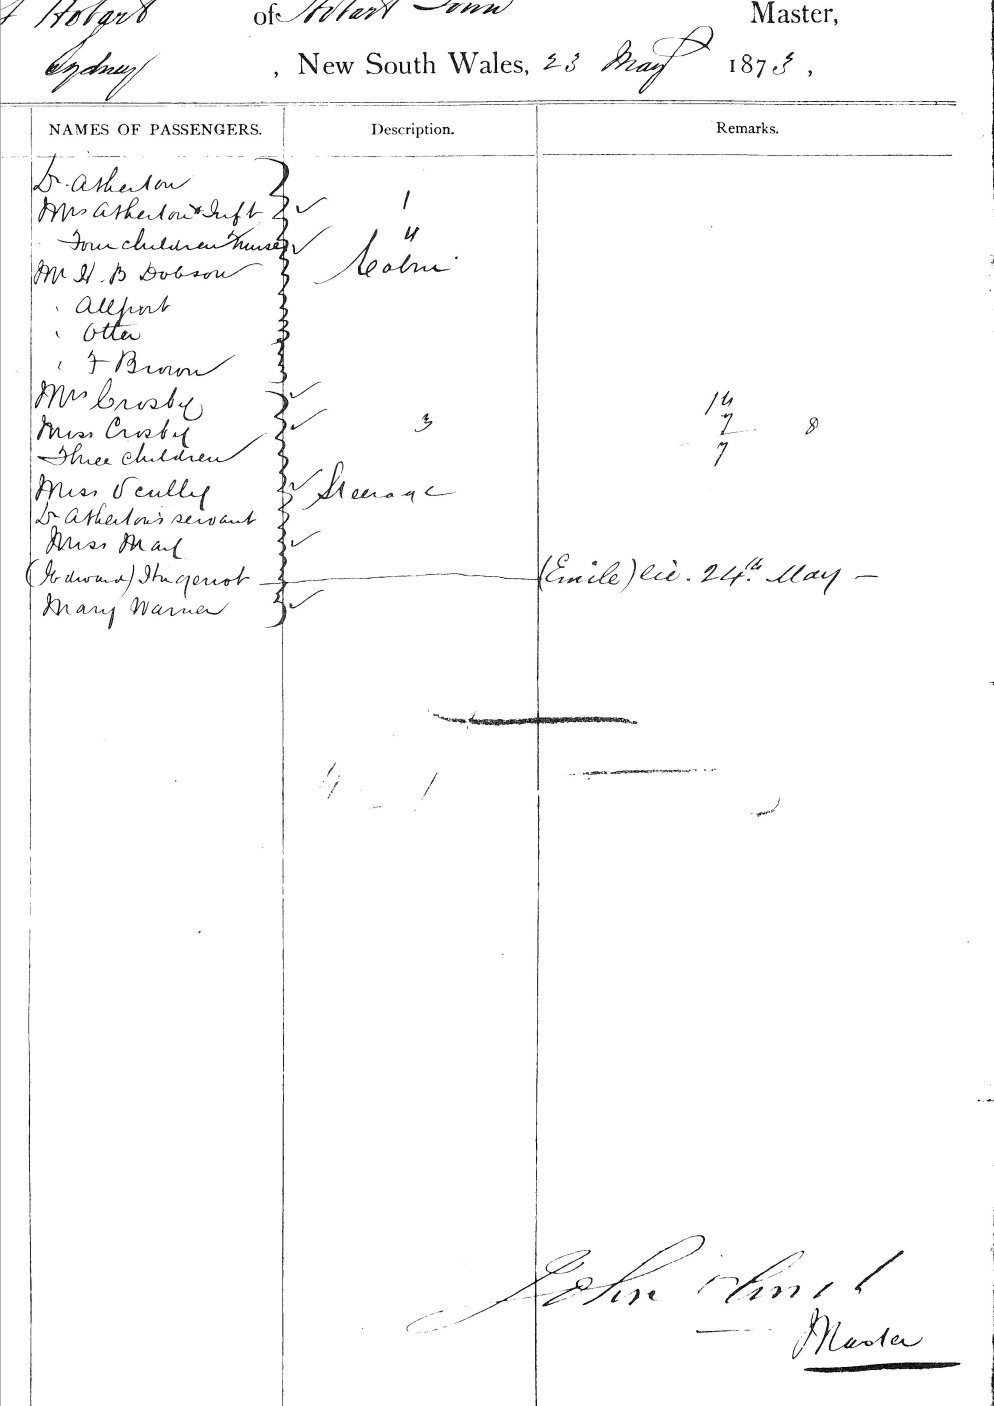 Hobart of Hobart Town Master,
Sydney , New South Wales, 23 May 1873,
NAMES OF PASSENGERS. Description. Remarks.
Dr. Atherton
Mrs Atherton & Inft 1
Four children & nurse 4
Mr H. B Dobson Cabin
" Allport
" Otter
" F Brown
Mrs Crosby 14
Miss Crosby 3 7 8
Three children 7
Miss Scully Steerage
Dr Atherton's servant
Miss May
(Edward) Hugenot (Emile) lic. 24th May —
Mary Warner
John
Master